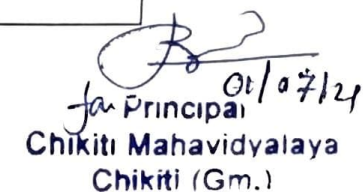 01/07/21
for Principal
Chikiti Mahavidyalaya
Chikiti (Gm.)